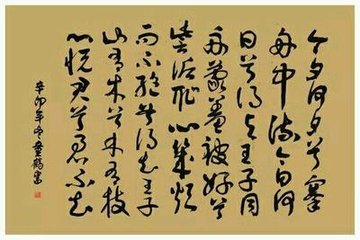 今夕何夕兮搴
舟中流今日何
日兮得与王子同
舟蒙羞被好兮
訾诟耻心幾烦
而不绝兮得知王子
山有木兮木有枝
心悦君兮君不知
辛卯年冬